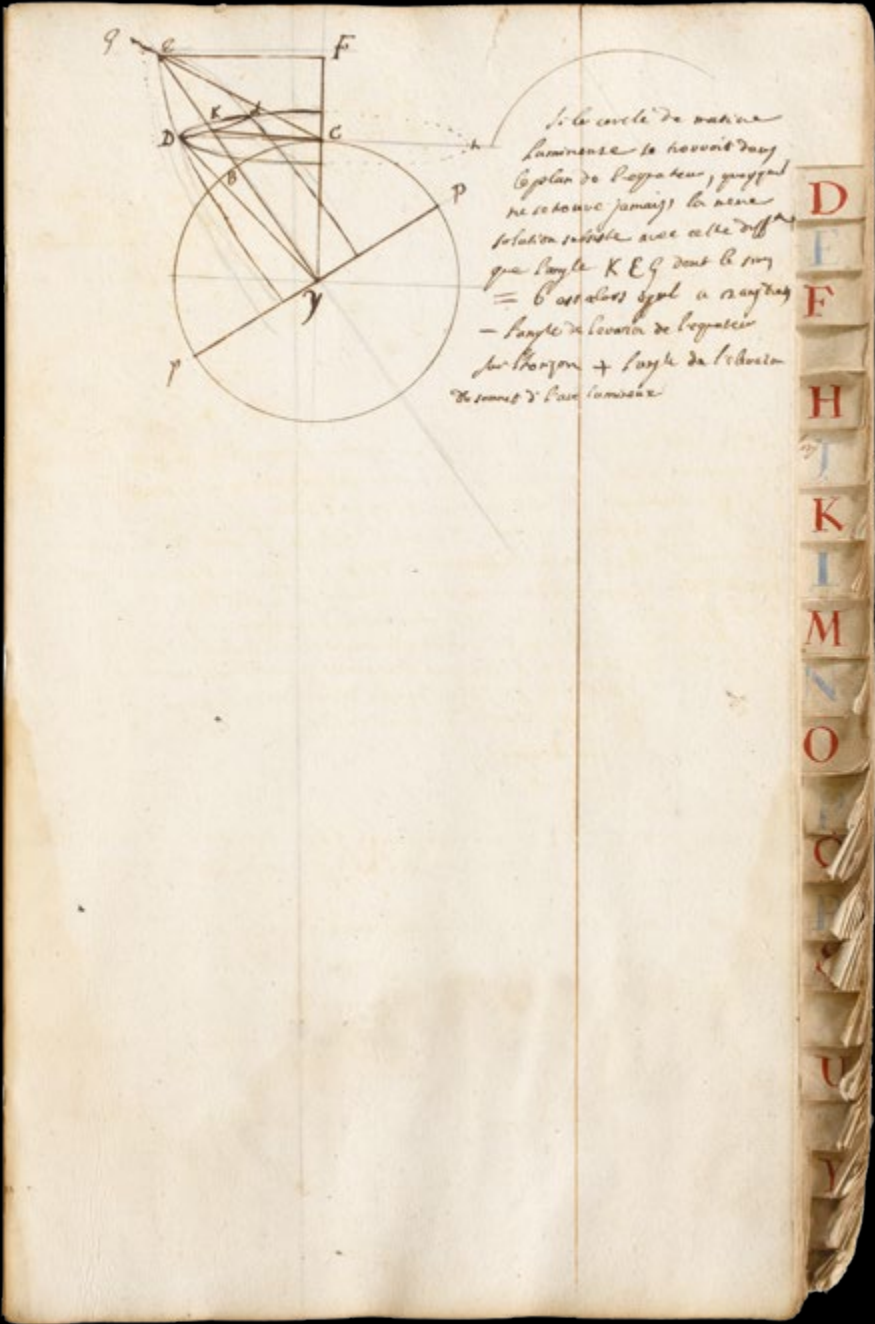 g E F
K
D C h
B
P
Y
P
Si le cercle de matiere
lumineuse se trouvoit dans
le plan de l'equateur, quoyquil
ne se trouve jamais la meme
solution subsiste avec cette diff
que l'angle K E G dont le
= b est alors egal a
- l'angle de l'equateur
sur l'horizon + l'angle de l'elevation
du sommet de l'arc lumineux
D
E
F
H
J
K
L
M
N
O
P
Q
R
S
U
Y